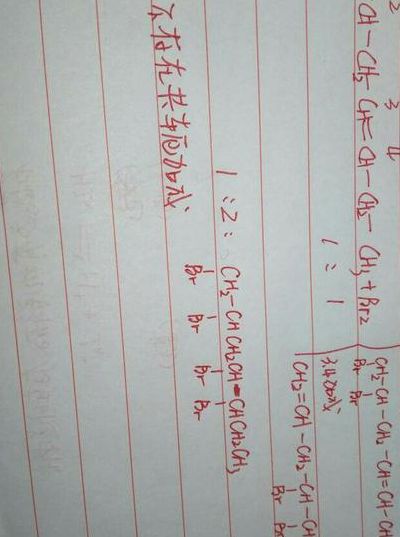 2 3 4
CH-CH2 CH=CH-CH2-CH3+Br2
1:1
CH2-CH-CH2-CH=CH-CH
Br Br
3.4加成
CH2=CH-CH2-CH-CH
Br Br
1:2: CH2-CHCH2CH-CHCH2CH3
Br Br Br Br
不存在共轭加成